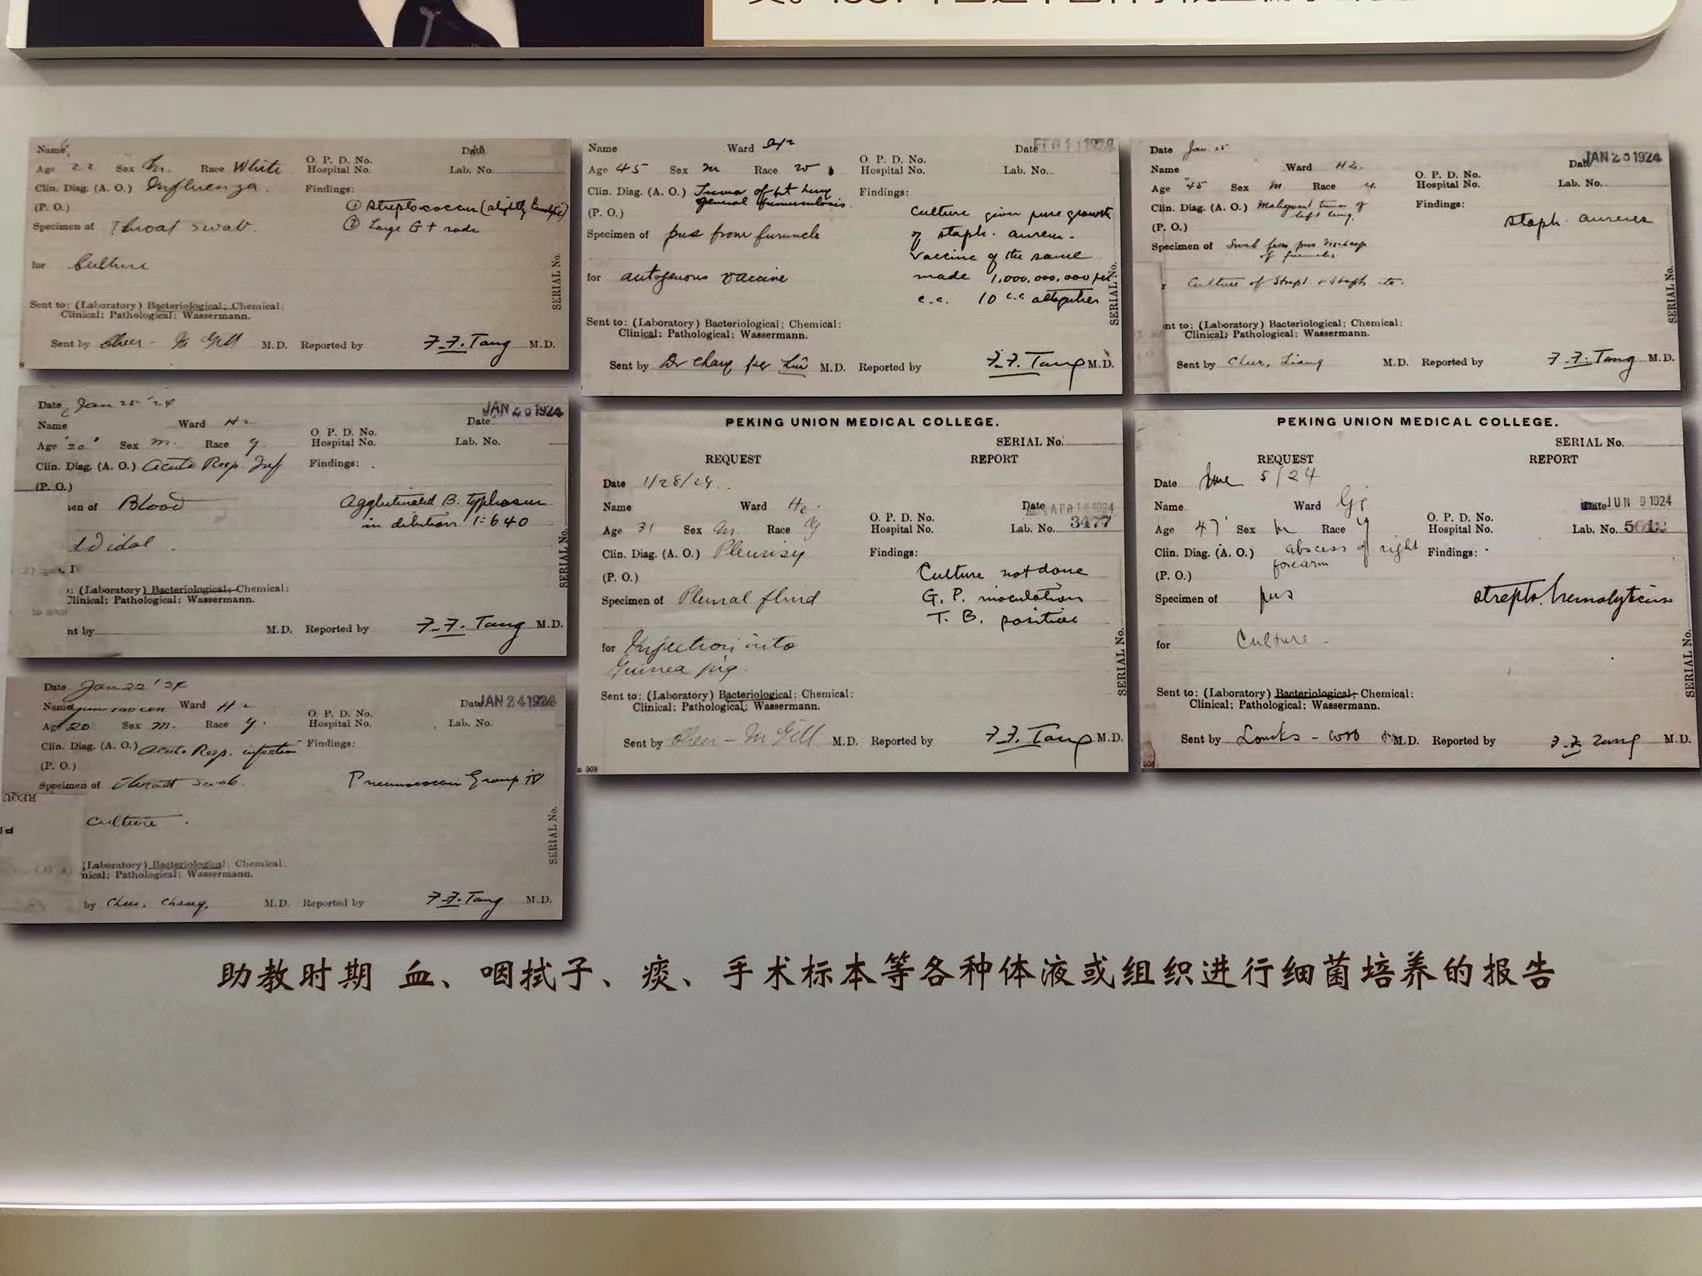 Name
Date
Age 22 Sex M. Race White
O. P. D. No.
Hospital No.
Lab. No.
Clin. Diag. (A. O.) Influenza.
Findings:
(P. O.)
① Streptococcus (slightly hemolytic)
Specimen of Throat swab.
② Large G + rods
for Culture
SERIAL No.
Sent to: (Laboratory) Bacteriological; Chemical:
Clinical; Pathological; Wassermann.
Sent by M. D. Reported by F. F. Tang M.D.
Name Ward
Date FEB 11 1924
Age 45 Sex M Race
O. P. D. No.
Hospital No.
Lab. No.
Clin. Diag. (A. O.) Tumor of lt lung
general furunculosis.
Findings:
(P. O.)
Culture given pure growth
Specimen of pus from furuncle
of staph. aureus.
Vaccine of the same
for autogenous vaccine
made 1,000,000,000 per
c.c. 10 c.c. altogether
SERIAL No.
Sent to: (Laboratory) Bacteriological; Chemical:
Clinical; Pathological; Wassermann.
Sent by Dr Chang per Liu M. D. Reported by F. F. Tang M.D.
Date Jan. 25
Name Ward
Date JAN 25 1924
Age 45 Sex M. Race y.
O. P. D. No.
Hospital No.
Lab. No.
Clin. Diag. (A. O.) Malignant tumor of
left lung.
Findings:
(P. O.)
staph. aureus
Specimen of Swab from pus discharge
of furuncles
Culture of Strept & Staph etc.
SERIAL No.
nt to: (Laboratory) Bacteriological; Chemical:
Clinical; Pathological; Wassermann.
Sent by Liang M.D. Reported by F. F. Tang M.D.
Date Jan 25 '24
Name Ward
Date JAN 1924
Age 20 Sex M. Race y.
O. P. D. No.
Hospital No.
Lab. No.
Clin. Diag. (A. O.) Acute Resp. Inf
Findings:
(P. O.)
men of Blood
Agglutinated B. typhosus
in dilution 1:640
Widal.
SERIAL No.
: (Laboratory) Bacteriological; Chemical:
Clinical; Pathological; Wassermann.
nt by M. D. Reported by F. F. Tang M.D.
PEKING UNION MEDICAL COLLEGE.
SERIAL No.
REQUEST REPORT
Date 1/28/24.
Name Ward
Date APR 1924
Age 31 Sex M. Race y
O. P. D. No.
Hospital No.
Lab. No. 3477
Clin. Diag. (A. O.) Pleurisy
Findings:
(P. O.)
Culture not done
Specimen of Pleural fluid
G. P. inoculation
T. B. positive
for Injection into
Guinea pig.
SERIAL No.
Sent to: (Laboratory) Bacteriological; Chemical:
Clinical; Pathological; Wassermann.
Sent by M. D. Reported by F. F. Tang M.D.
508
PEKING UNION MEDICAL COLLEGE.
SERIAL No.
REQUEST REPORT
Date June 5/24
Name Ward
Date JUN 9 1924
Age 47 Sex M Race y
O. P. D. No.
Hospital No.
Lab. No.
Clin. Diag. (A. O.) abscess of right
forearm
Findings:
(P. O.)
Specimen of pus
strepto. hemolyticus
for Culture
SERIAL No.
Sent to: (Laboratory) Bacteriological; Chemical:
Clinical; Pathological; Wassermann.
Sent by Loucks - M. D. Reported by F. F. Tang M.D.
508
Date Jan 22 '24
Name Ward
Date JAN 24 1924
Age 20 Sex M. Race y.
O. P. D. No.
Hospital No.
Lab. No.
Clin. Diag. (A. O.) Acute Resp. infection
Findings:
(P. O.)
Specimen of Throat swab.
Pneumococcus Group IV
culture.
SERIAL No.
(Laboratory) Bacteriological; Chemical:
nical; Pathological; Wassermann.
by Chang. M.D. Reported by F. F. Tang M.D.
助教时期 血、咽拭子、痰、手术标本等各种体液或组织进行细菌培养的报告